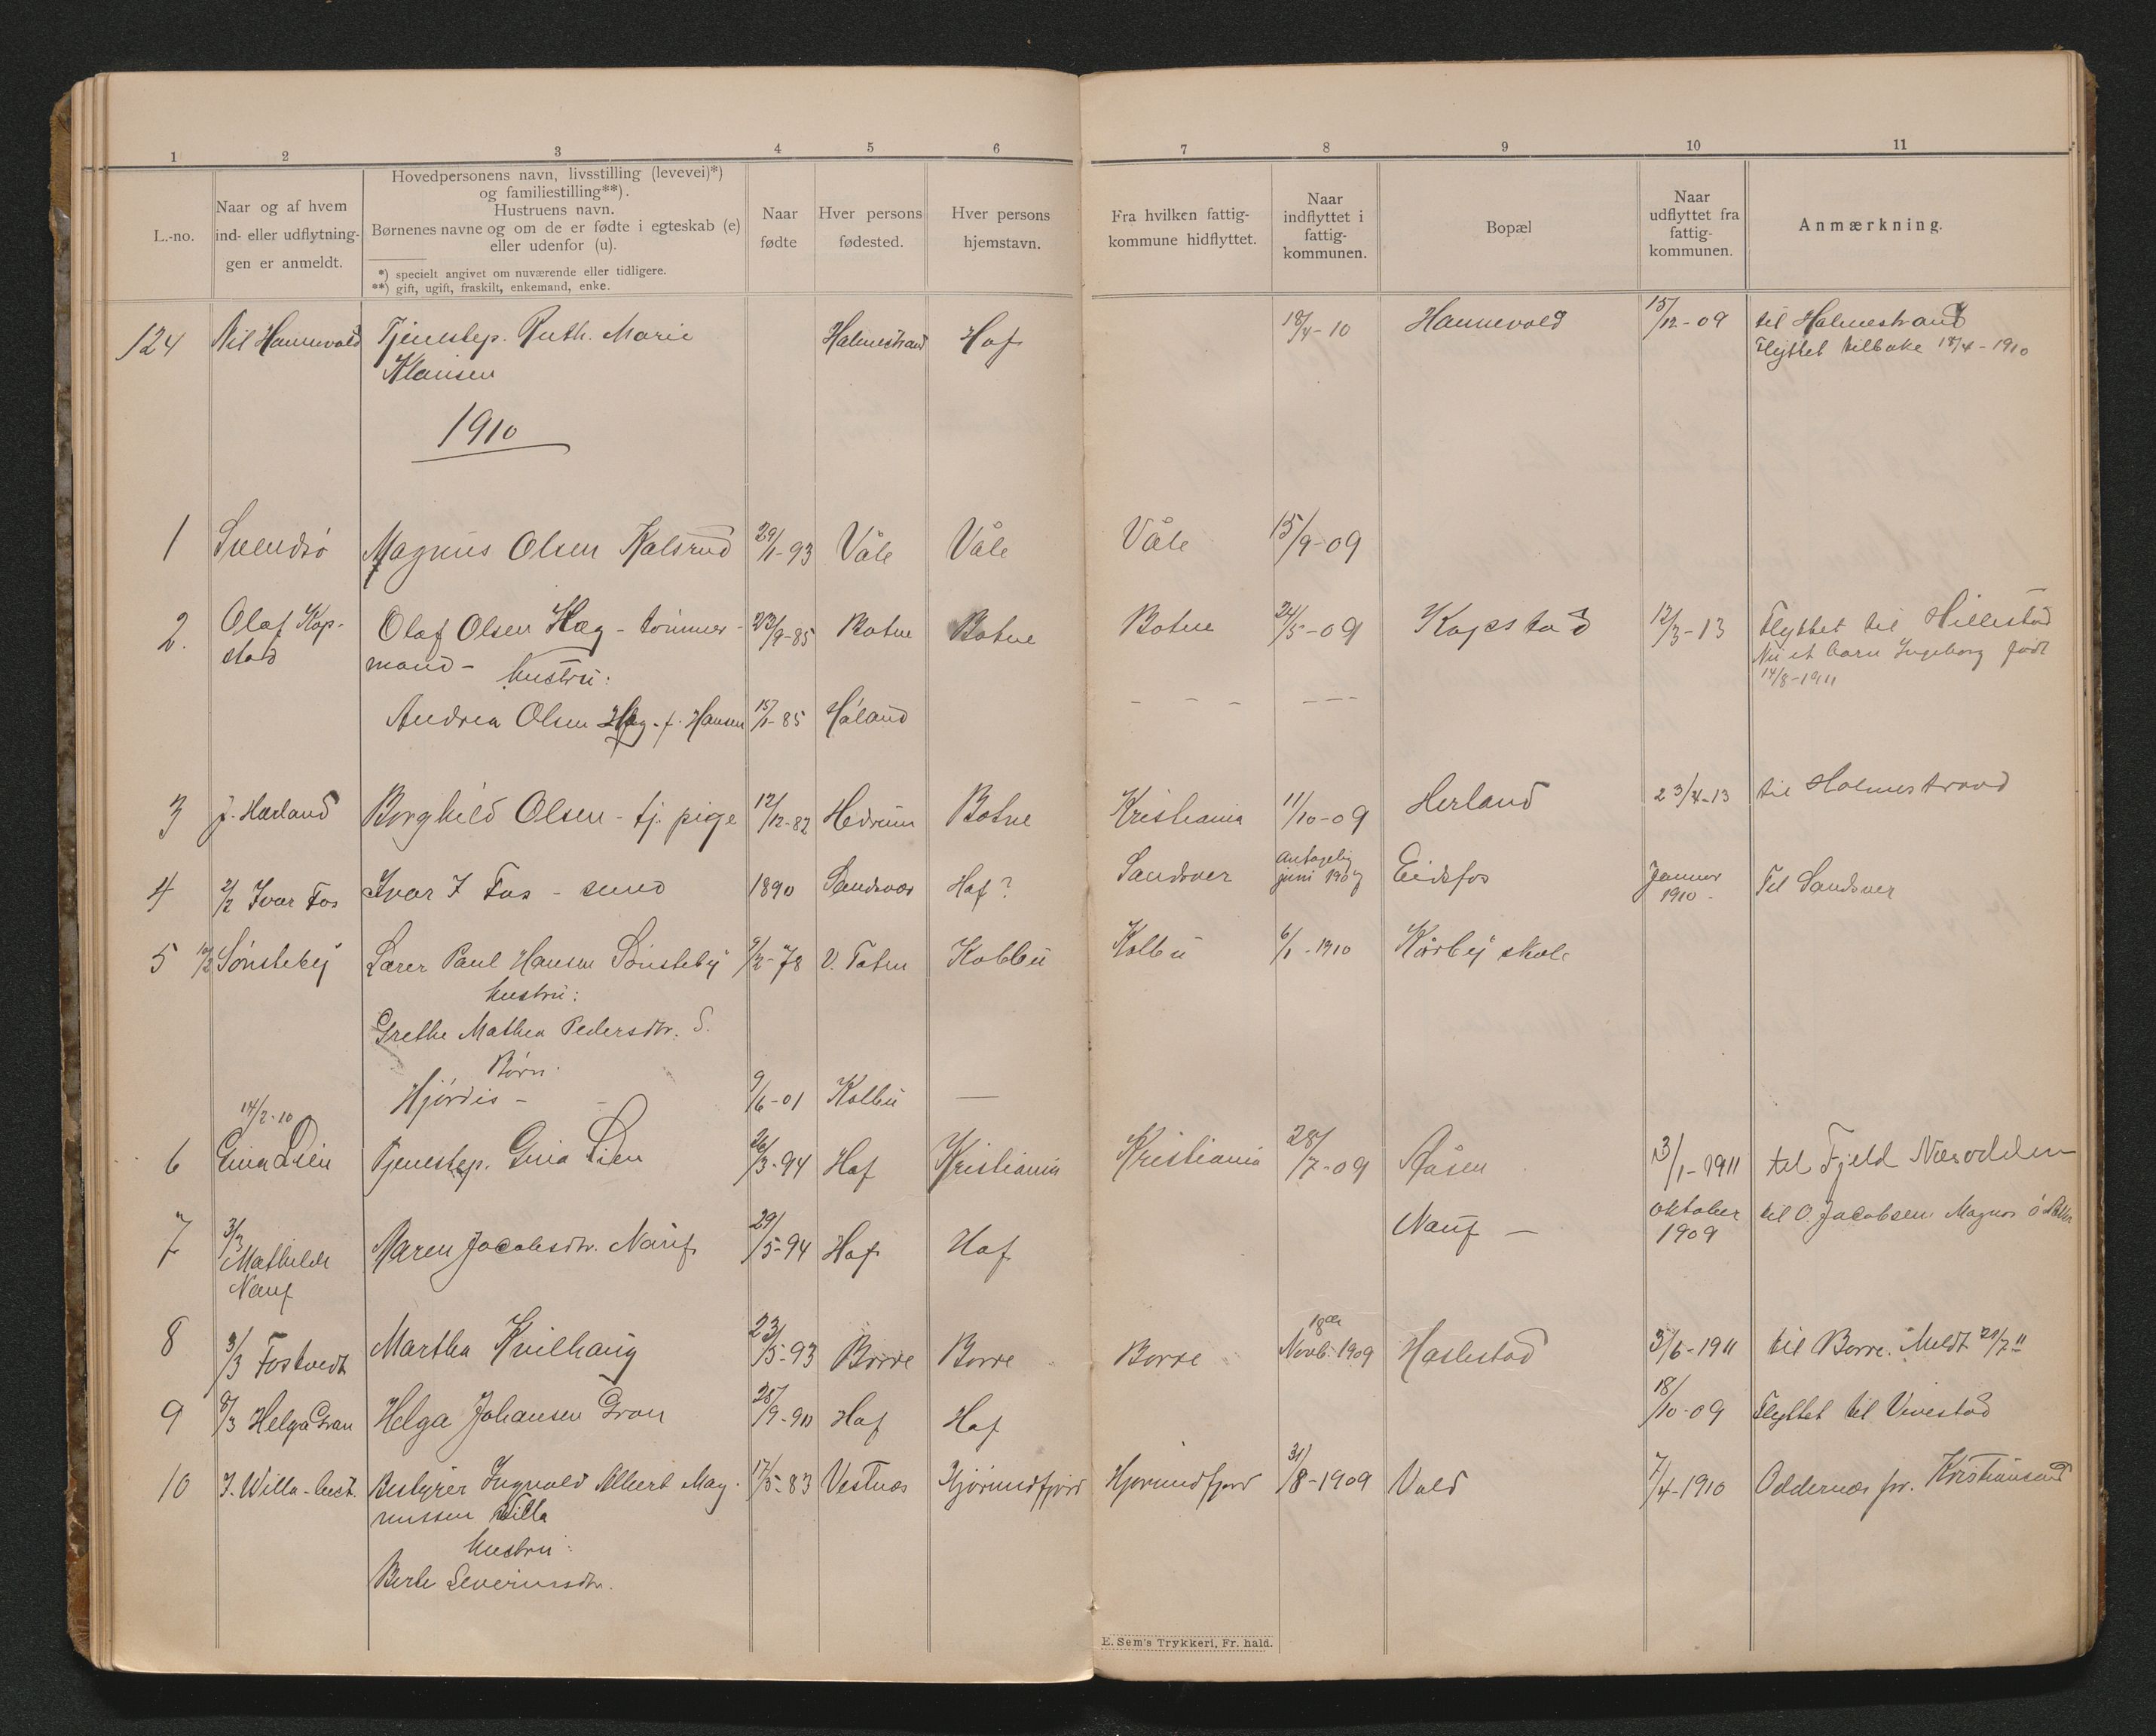 1 2 3 4 5 6 7 8 9 10 11
L.-no.
Naar og af hvem
ind- eller udflytning-
gen er anmeldt.
Hovedpersonens navn, livsstilling (levevei)*)
og familiestilling**).
Hustruens navn.
Børnenes navne og om de er fødte i egteskab (e)
eller udenfor (u).
*) specielt angivet om nuværende eller tidligere.
**) gift, ugift, fraskilt, enkemand, enke.
Naar
fødte
Hver persons
fødested.
Hver persons
hjemstavn.
Fra hvilken fattig-
kommune hidflyttet.
Naar
indflyttet i
fattig-
kommunen.
Bopæl
Naar
udflyttet fra
fattig-
kommunen.
Anmærkning.
124 Hannevold Tjenestep. Ruth. Marie Holmestrand Hof 18/4-10 Hannevold 15/12-09 til Holmestrand
Klausen Flyttet tilbake 18/4-1910
1910
1 Svendsø Magnus Olsen Kalsrud 29/1-93 Våle Våle Våle 15/9-09
2. Olaf Kop- Olaf Olsen Hæg - tømmer- 23/9-85 Botne Botne Botne 24/5-09 Kopstad 12/3-13 Flyttet til Hillestad
stad mand - hustru: Nu et barn Ingeborg født
14/8-1911
Andrea Olsen Hæg - f. Hansen 15/1-85 Høland - - - ---
3 J. Hærland Borghild Olsen - tj. pige 12/12-82 Hedrum Botne Kristiania 11/10-09 Herland 23/4-13 til Holmestrand
4 2/2 Ivar Fos Ivar I Fos - smed 1890 Sandsvær Hof? Sandsver antagelig juni 1907 Eidsfos Januar 1910- Til Sandsver
5 Sønsteby Lærer Paul Hansen Sønsteby 9/2-78 V. Toten Kolbu Kolbu 6/1-1910 Kårby skole
hustru:
Grethe Mathea Pedersdtr. S.
Børn
Hjørdis - 9/6-01 Kolbu —
14/2-10
6 Gina Lien Tjenestep. Gina Lien 26/3-94 Hof Kristiania Kristiania 28/7-09 Åsen 13/1-1911 til Fjeld Næsodden
7 3/3 Mathilde Nauf Maren Jacobsdtr. Nauf 29/5-94 Hof Hof Nauf — oktober 1909 til O. Jacobsen Magnor
8 3/3 Fostvedt Martha Kvilhaug 23/5-93 Borre Borre Borre 18de Novb. 1909 Haslestad 3/6-1911 til Borre. Meldt 29/7 11
9 8/3 Helga Gran Helga Johansen Gran 25/9-90 Hof Hof 18/10-09 Flyttet til Vivestad
10 I. Willa - best. Bestyrer Ingvald Albert Mag- 17/5-83 Vestnæs Hjørundfjord Hjørundfjord 31/8-1909 Vold 7/4-1910 Oddernæs pr. Kristiansand
nussen Willa
hustru:
Berte Severinsdtr.
E. Sem's Trykkeri, Fr. hald.